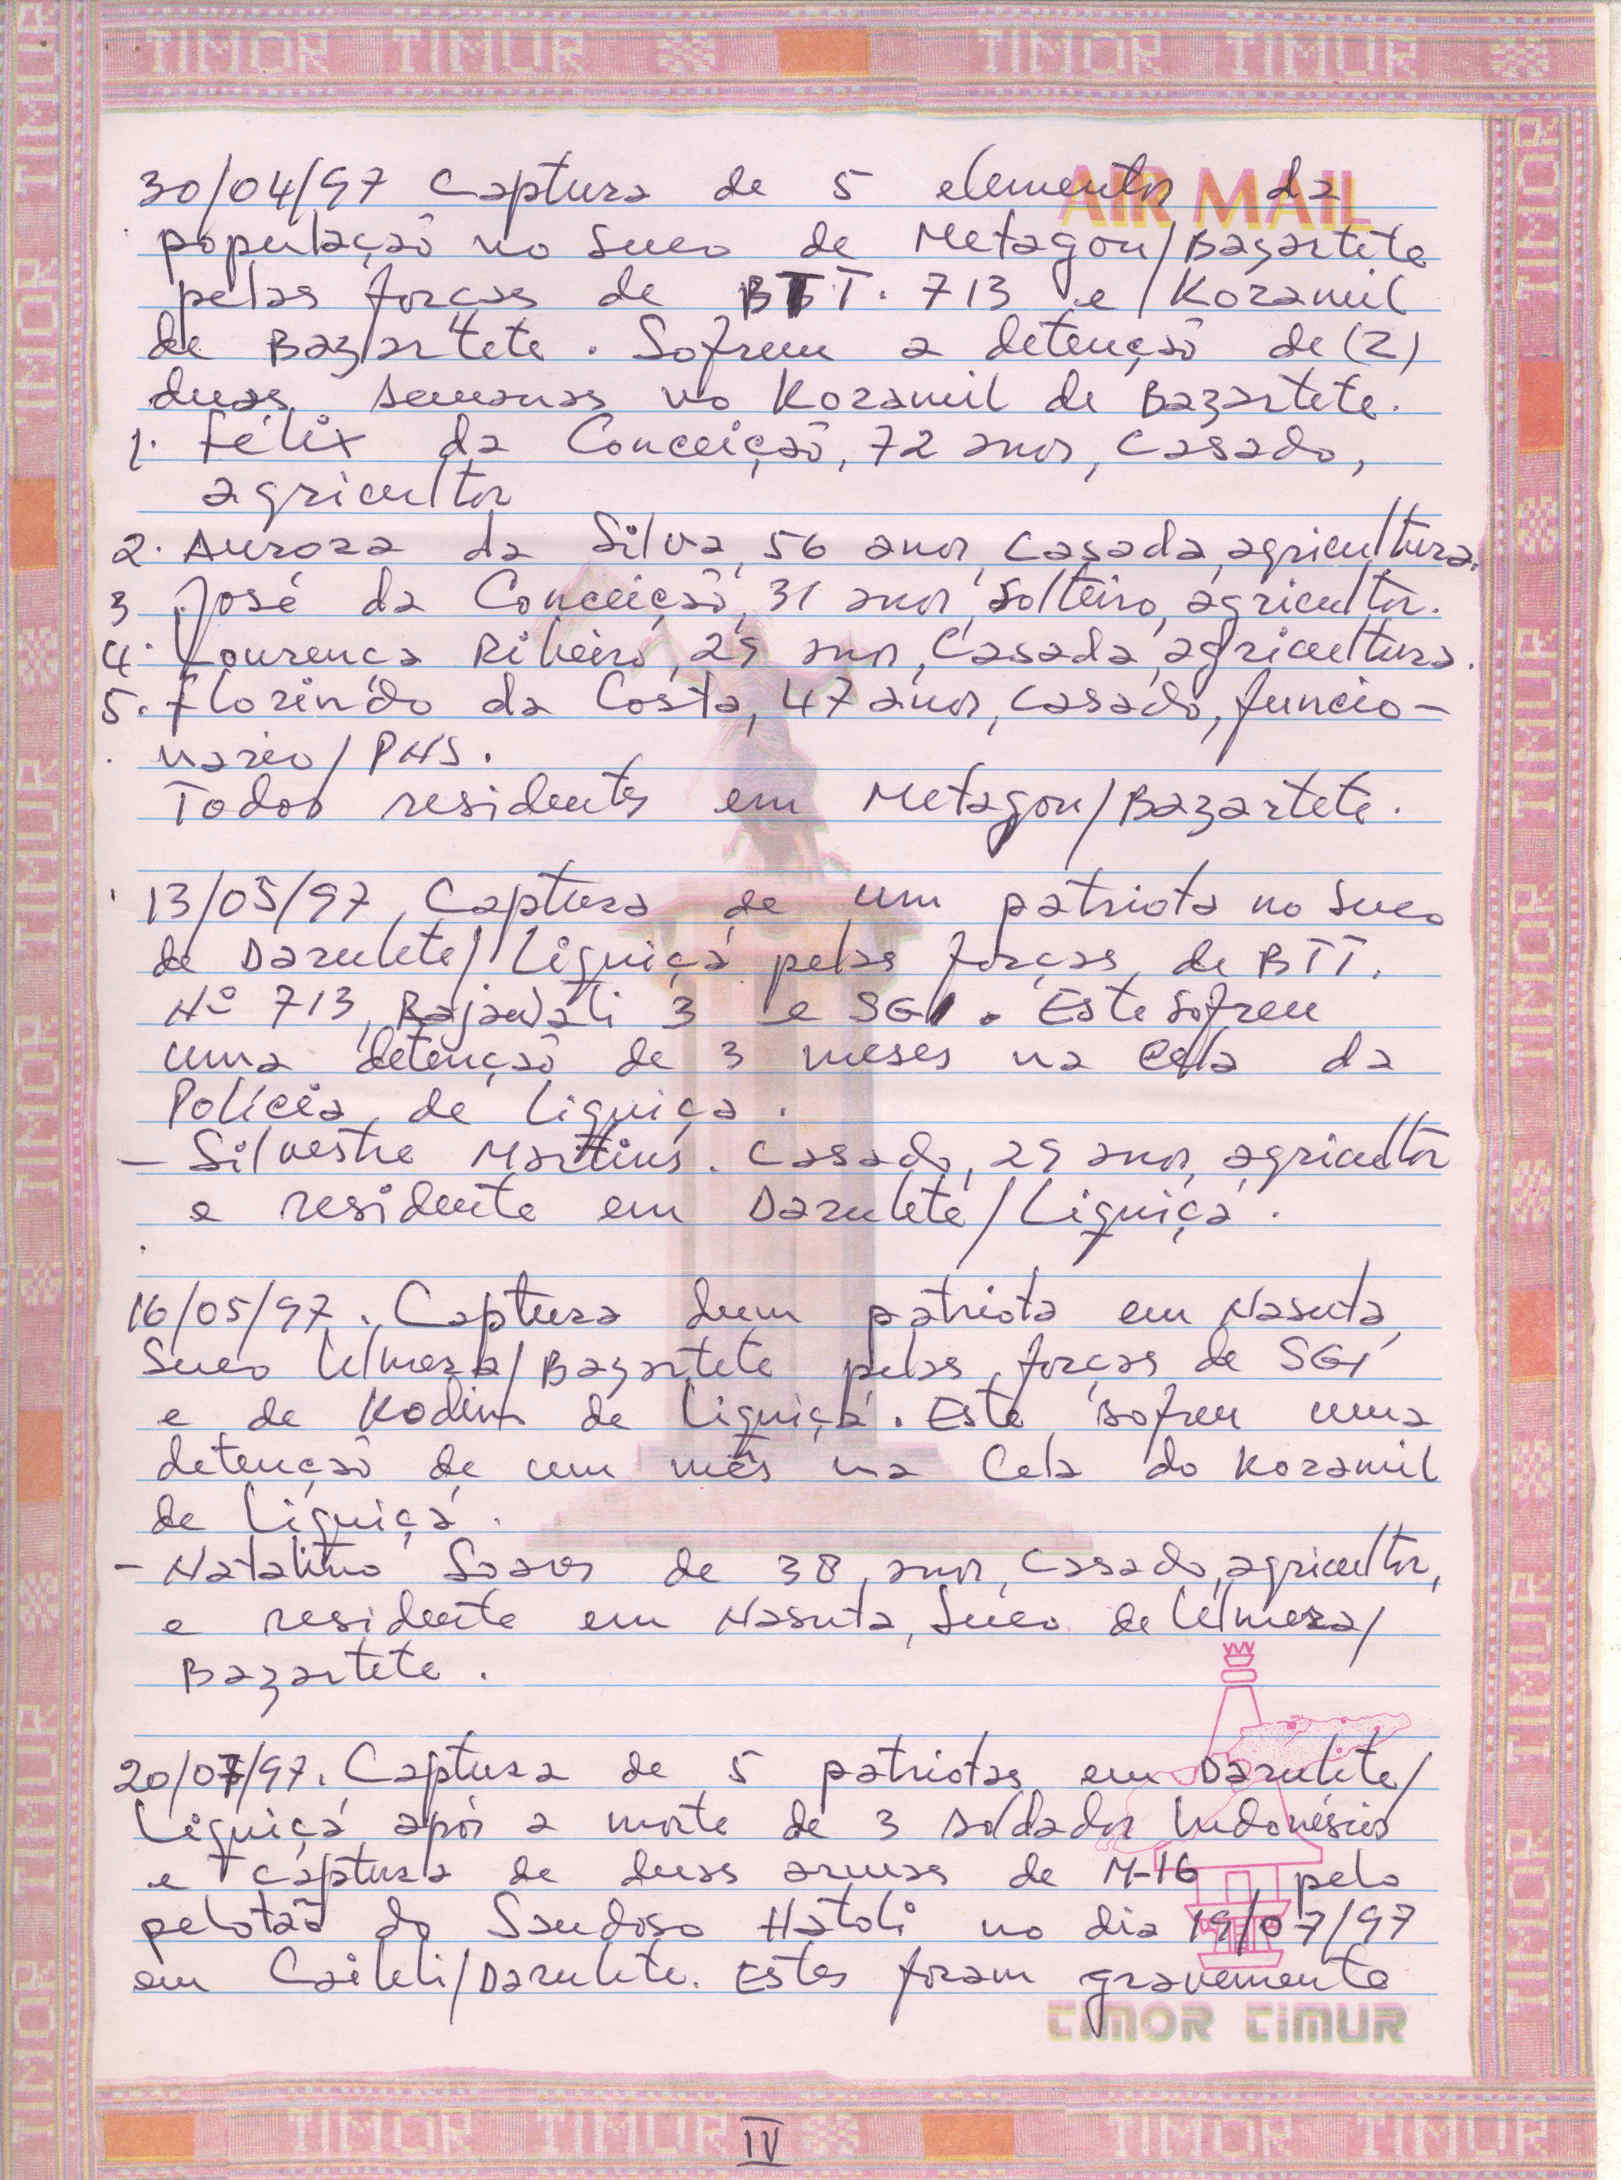 TIMOR TIMUR TIMOR TIMUR
AIR MAIL
30/04/97 Captura de 5 elementos da
população no Suco de Metagou/Bazartete
pelas forças de BTT. 713 e Koramil
de Bazartete. Sofrem a detenção de (2)
duas semanas no Koramil de Bazartete.
1. Félix da Conceição, 72 anos, casado,
agricultor
2. Aurora da Silva, 56 anos, casada, agricultura.
3 José da Conceição, 31 anos, solteiro, agricultor.
4. Lourença Ribeiro, 29 anos, casada, agricultura.
5. Florindo da Costa, 47 anos, casado, funcio-
nário/PNS.
Todos residentes em Metagou/Bazartete.
13/05/97, Captura de um patriota no Suco
de Darulete/Liquiçá pelas forças de BTT.
Nº 713, Rajawali 3 e SGI. Este sofreu
uma detenção de 3 meses na Cela da
Polícia de Liquiça.
- Silvestre Martins. Casado, 29 anos, agricultor
e residente em Darulete/Liquiçá.
16/05/97. Captura dum patriota em Nasuta,
Suco Ulmera/Bazartete pelas forças de SGI
e de Kodim de Liquiçá. Este sofreu uma
detenção de um mês na Cela do Koramil
de Liquiçá.
- Natalino Soares de 38 anos, casado, agricultor,
e residente em Nasuta, Suco de Ulmera/
Bazartete.
20/07/97. Captura de 5 patriotas em Darulete/
Liquiçá após a morte de 3 soldados Indonésios
e captura de duas armas de M-16, pelo
pelotão do Saudoso Hatoli no dia 19/07/97
em Caileli/Darulete. Estes foram gravemente
TIMOR TIMUR
TIMOR TIMUR TIMOR TIMUR
IV